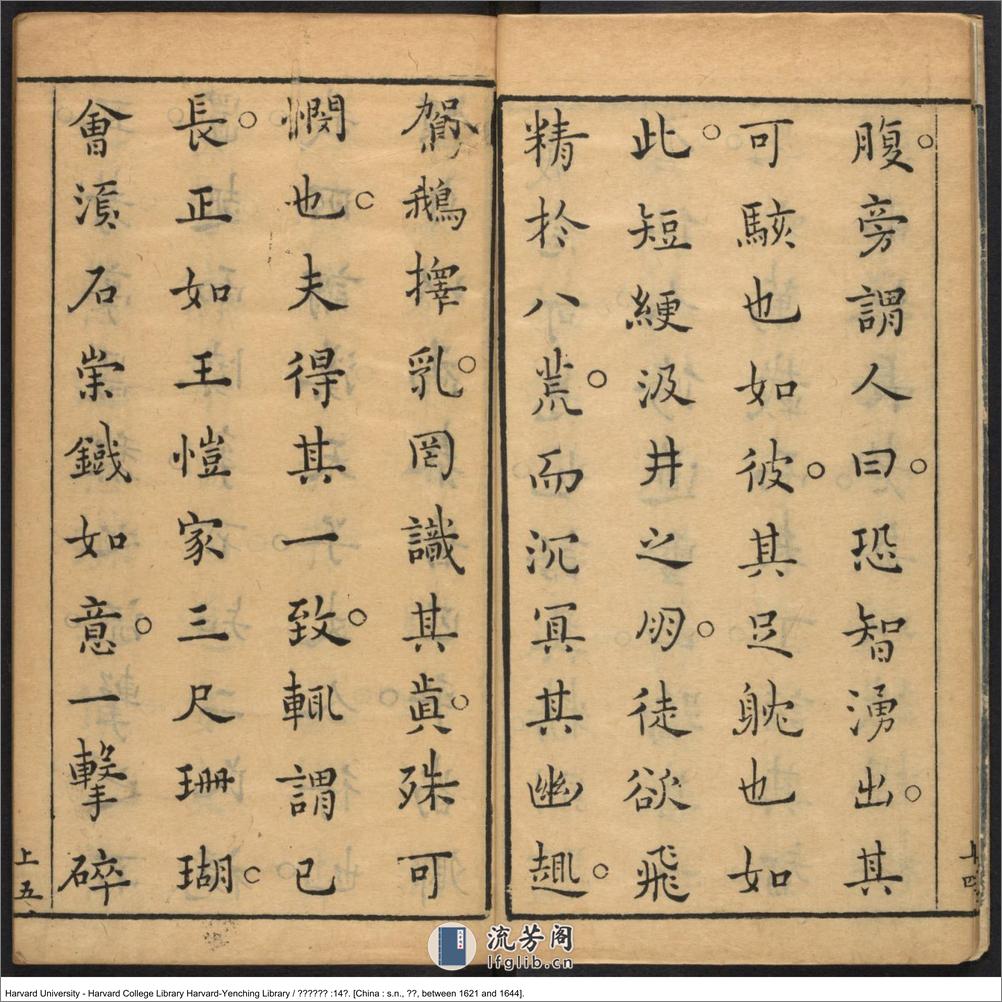 腹。旁謂人曰。恐智湧出。其
可駭也如彼。其足躭也如
此。短綆汲井之朋。徒欲飛
精於八荒。而沉冥其幽趣。
十四
駕鵝擇乳。罔識其眞。殊可
憫也。夫得其一致。輒謂已
長。正如王愷家三尺珊瑚。
會湏石崇鐵如意。一擊碎
上五
流芳阁
lfglib.cn
Harvard University - Harvard College Library Harvard-Yenching Library / ?????? :14?. [China : s.n., ??, between 1621 and 1644].